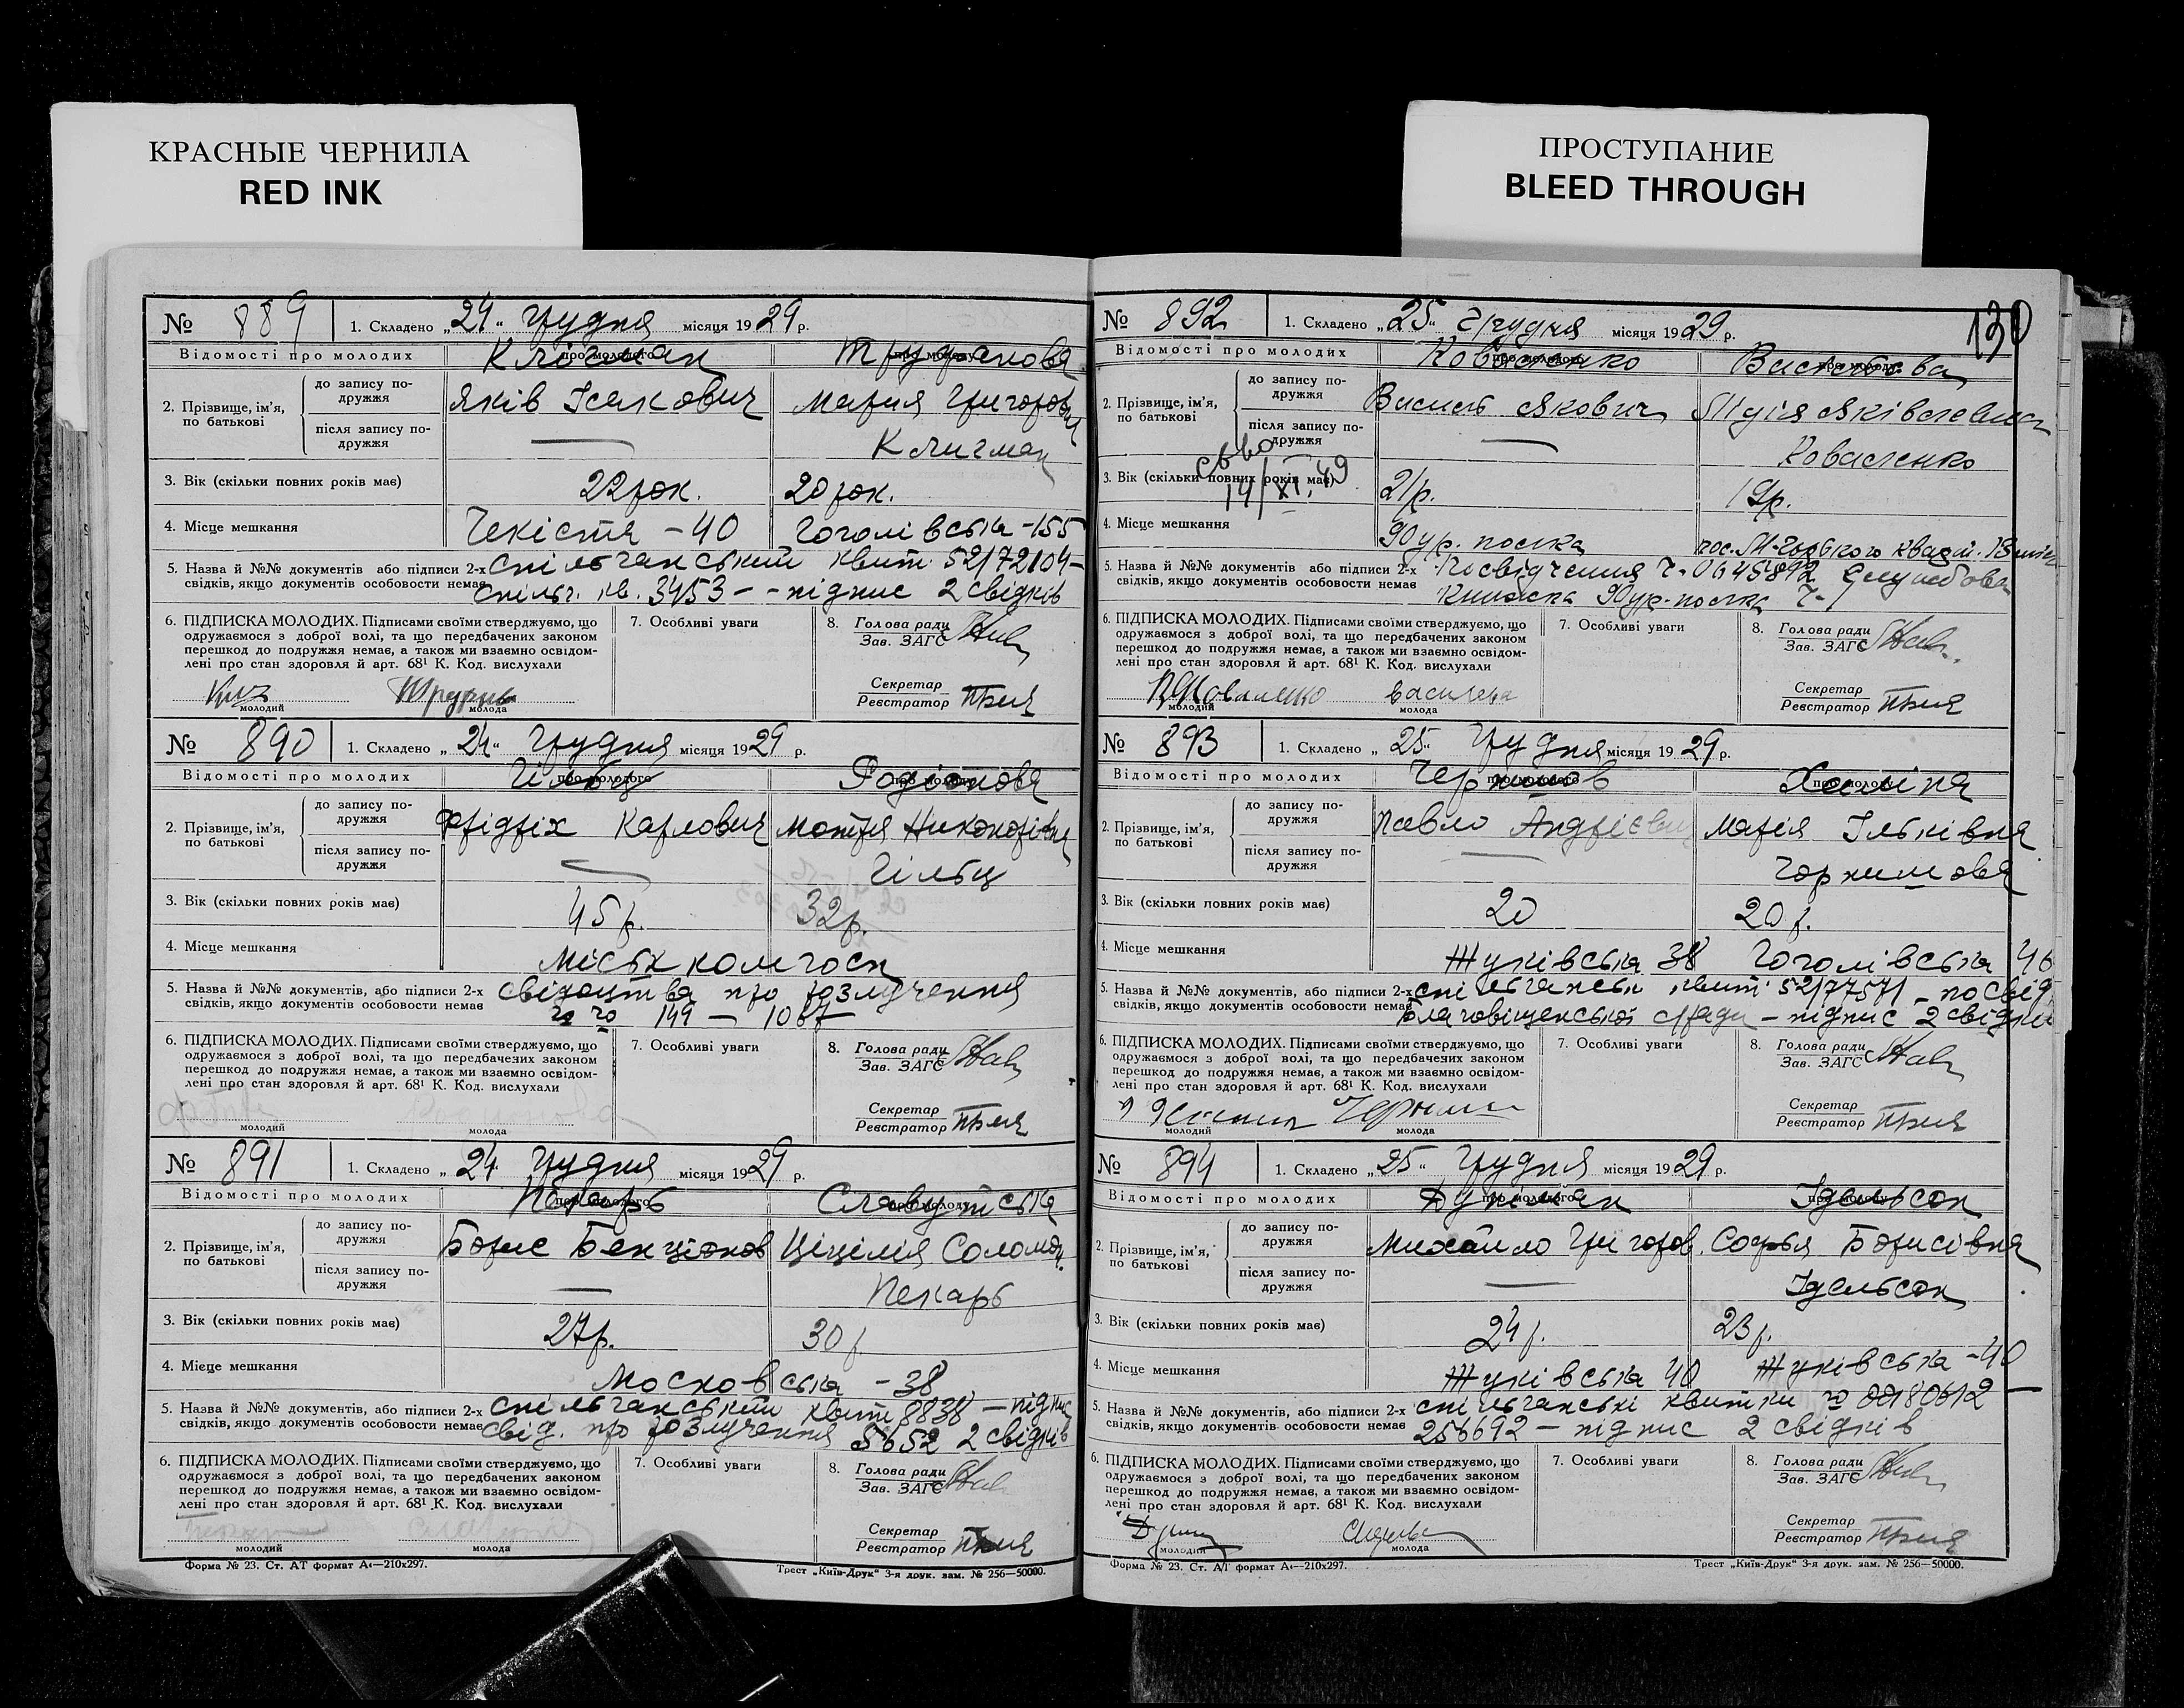 КРАСНЫЕ ЧЕРНИЛА
RED INK
ПРОСТУПАНИЕ
BLEED THROUGH
№ 889 1. Складено „24“ грудня місяця 1929 р.
Відомості про молодих про молодого про молоду
Клігман Труфанова
2. Прізвище, ім’я, по батькові
до запису подружжя Яків Ісакович Мария Григоров
після запису подружжя — Клигман
3. Вік (скільки повних років має) 22 рок. 20 рок.
4. Місце мешкання Чекістя - 40 Гоголівська - 155
5. Назва й №№ документів або підписи 2-х спільчанський квит. 52/72104 -
свідків, якщо документів особовости немає спільч. кв. 3453 - - підпис 2 свідків
6. ПІДПИСКА МОЛОДИХ. Підписами своїми стверджуємо, що
одружаємося з доброї волі, та що передбачених законом
перешкод до подружжя немає, а також ми взаємно освідом-
лені про стан здоровля й арт. 68¹ К. Код. вислухали
молодий молода
7. Особливі уваги
8. Голова ради
Зав. ЗАГС
Секретар
Реєстратор
№ 890 1. Складено „24“ грудня місяця 1929 р.
Відомості про молодих про молодого про молоду
Гільц Родіонова
2. Прізвище, ім’я, по батькові
до запису подружжя Фрідріх Карлович Мотря
після запису подружжя — Гільц
3. Вік (скільки повних років має) 45 р. 32 р.
4. Місце мешкання Міськкомгосп
5. Назва й №№ документів, або підписи 2-х свідоцтва про розлучення
свідків, якщо документів особовости немає 149 — 1067
6. ПІДПИСКА МОЛОДИХ. Підписами своїми стверджуємо, що
одружаємося з доброї волі, та що передбачених законом
перешкод до подружжя немає, а також ми взаємно освідом-
лені про стан здоровля й арт. 68¹ К. Код. вислухали
Родионова
молодий молода
7. Особливі уваги
8. Голова ради
Зав. ЗАГС
Секретар
Реєстратор
№ 891 1. Складено „24 грудня місяця 1929 р.
Відомості про молодих про молодого про молоду
Пекарь Славутська
2. Прізвище, ім’я, по батькові
до запису подружжя Борис Бенціонов Ціцілія Соломон.
після запису подружжя — Пекарь
3. Вік (скільки повних років має) 27 р. 30 р
4. Місце мешкання Московська - 38
5. Назва й №№ документів, або підписи 2-х спільчанський квит 8838 — підпис
свідків, якщо документів особовости немає свід. про розлучення 5652 2 свідків
6. ПІДПИСКА МОЛОДИХ. Підписами своїми стверджуємо, що
одружаємося з доброї волі, та що передбачених законом
перешкод до подружжя немає, а також ми взаємно освідом-
лені про стан здоровля й арт. 68¹ К. Код. вислухали
молодий молода
7. Особливі уваги
8. Голова ради
Зав. ЗАГС
Секретар
Реєстратор
Форма № 23. Ст. АТ формат А₄—210х297.
Трест „Київ-Друк“ 3-я друк. зам. № 256—50000.
130
№ 892 1. Складено „25“ грудня місяця 1929 р.
Відомості про молодих про молодого про молоду
Коваленко Васильєва
2. Прізвище, ім’я, по батькові
до запису подружжя Василь Якович
після запису подружжя — Коваленко
14/XI. 49
3. Вік (скільки повних років має) 21 р. 19 р.
4. Місце мешкання 90 ур. полка
5. Назва й №№ документів або підписи 2-х Посвідчення
свідків, якщо документів особовости немає книжка 90 ур. полка
6. ПІДПИСКА МОЛОДИХ. Підписами своїми стверджуємо, що
одружаємося з доброї волі, та що передбачених законом
перешкод до подружжя немає, а також ми взаємно освідом-
лені про стан здоровля й арт. 68¹ К. Код. вислухали
Коваленко
молодий молода
7. Особливі уваги
8. Голова ради
Зав. ЗАГС
Секретар
Реєстратор
№ 893 1. Складено „25“ грудня місяця 1929 р.
Відомості про молодих про молодого про молоду
2. Прізвище, ім’я, по батькові
до запису подружжя Павло Андрієвич Марія Ільківня
після запису подружжя —
3. Вік (скільки повних років має) 20 20 р.
4. Місце мешкання Жуківська 38 Гоголівська 46
5. Назва й №№ документів, або підписи 2-х спільчанськ квит 52/77571 — посвід
свідків, якщо документів особовости немає Благовіщенської с/ради — підпис 2 свідків
6. ПІДПИСКА МОЛОДИХ. Підписами своїми стверджуємо, що
одружаємося з доброї волі, та що передбачених законом
перешкод до подружжя немає, а також ми взаємно освідом-
лені про стан здоровля й арт. 68¹ К. Код. вислухали
молодий молода
7. Особливі уваги
8. Голова ради
Зав. ЗАГС
Секретар
Реєстратор
№ 894 1. Складено „25“ грудня місяця 1929 р.
Відомості про молодих про молодого про молоду
Ідельсон
2. Прізвище, ім’я, по батькові
до запису подружжя Михайло Григоров. Софья Борисівня
після запису подружжя — Ідельсон
3. Вік (скільки повних років має) 24 р. 23 р.
4. Місце мешкання Жуківська 40 Жуківська - 40
5. Назва й №№ документів, або підписи 2-х спільчанські квитки
свідків, якщо документів особовости немає 256692 — підпис 2 свідків
6. ПІДПИСКА МОЛОДИХ. Підписами своїми стверджуємо, що
одружаємося з доброї волі, та що передбачених законом
перешкод до подружжя немає, а також ми взаємно освідом-
лені про стан здоровля й арт. 68¹ К. Код. вислухали
молодий молода
7. Особливі уваги
8. Голова ради
Зав. ЗАГС
Секретар
Реєстратор
Форма № 23. Ст. АТ формат А₄—210х297.
Трест „Київ-Друк“ 3-я друк. зам. № 256—50000.